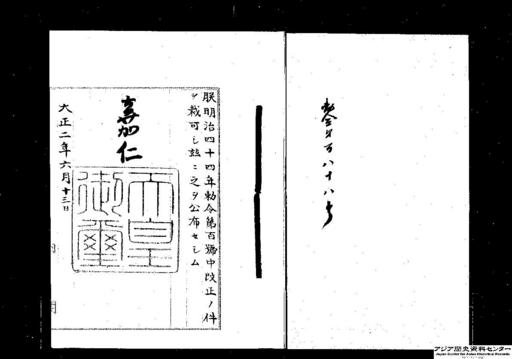 勅令第百八十八号
朕明治四十四年勅令第百號中改正ノ件
ヲ裁可シ玆ニ之ヲ公布セシム
嘉仁
天皇御璽
大正二年六月十三日
アジア歴史資料センター
Japan Center for Asian Historical Records